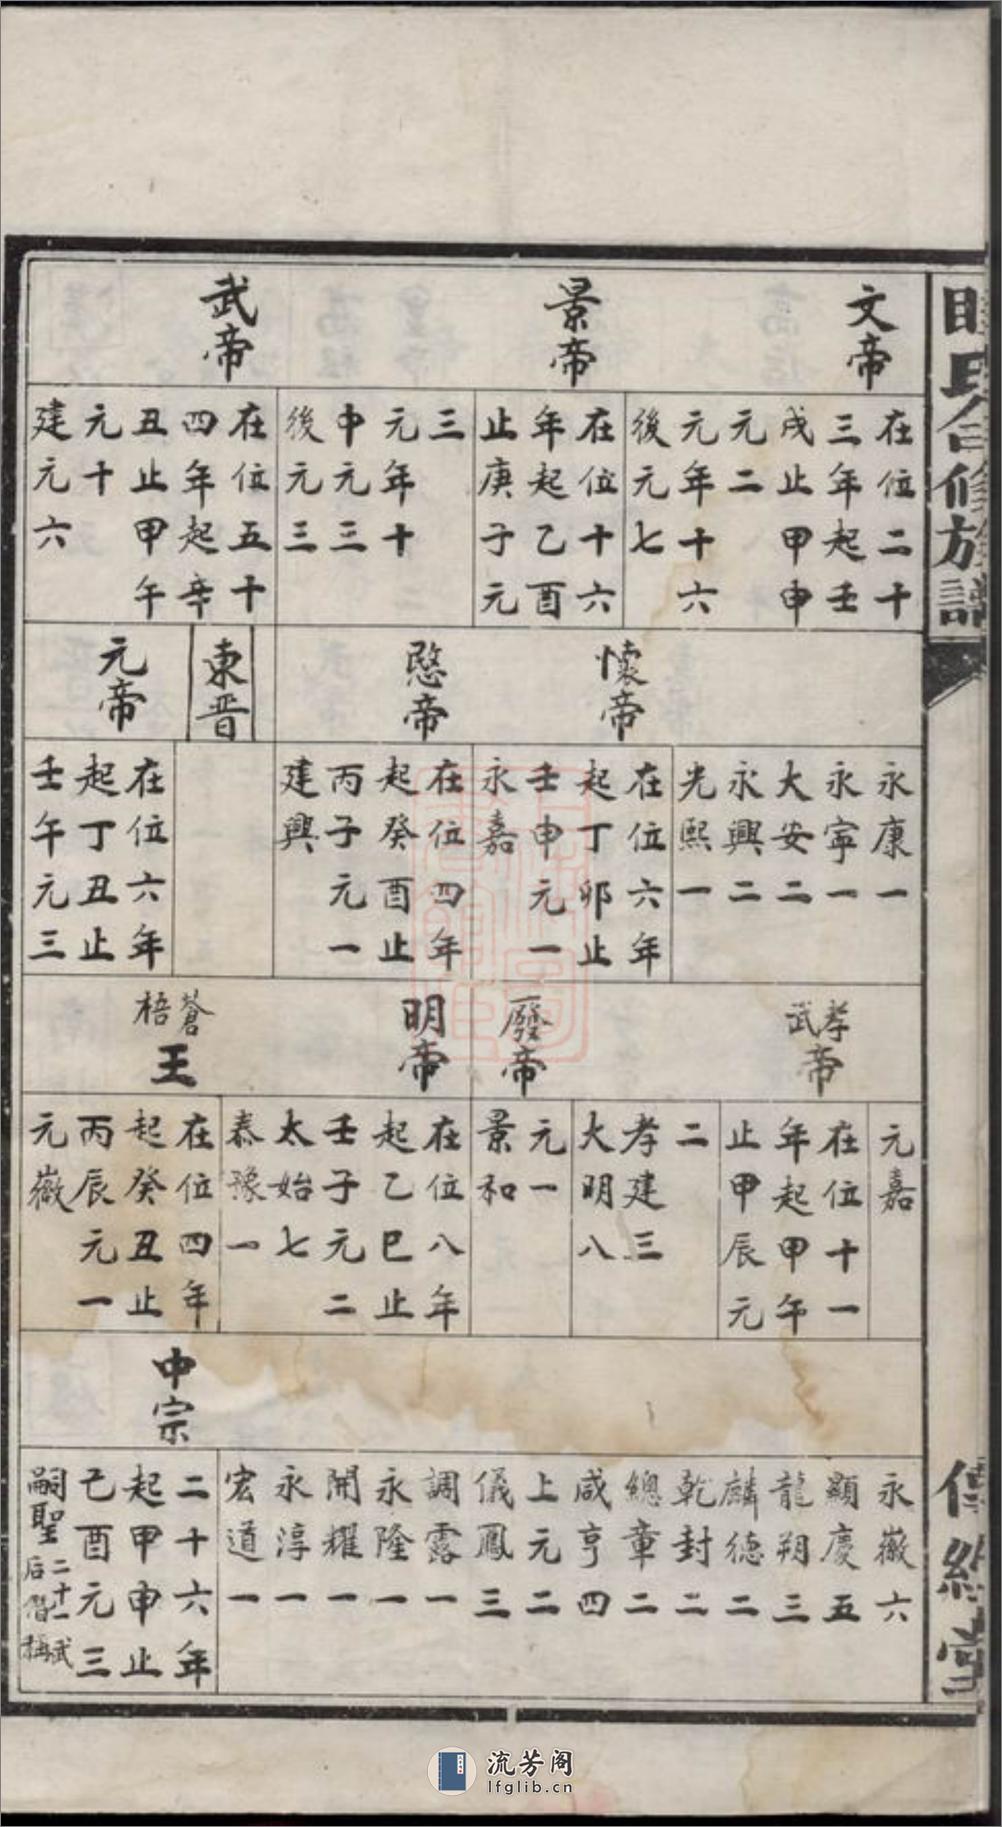 氏合修族譜
文帝
在位二十
三年起壬
戌止甲申
元二
元年十六
後元七
景帝
在位十六
年起乙酉
止庚子元
三
元年十
中元三
後元三
武帝
在位五十
四年起辛
丑止甲午
元十
建元六
永康一
永寧一
大安二
永興二
光熙一
懷帝
在位六年
起丁卯止
壬申元一
永嘉
愍帝
在位四年
起癸酉止
丙子元一
建興
東晉
元帝
在位六年
起丁丑止
壬午元三
元嘉
孝武帝
在位十一
年起甲午
止甲辰元
二
孝建三
大明八
廢帝
元一
景和
明帝
在位八年
起乙巳止
壬子元二
太始七
泰豫一
蒼梧王
在位四年
起癸丑止
丙辰元一
元徽
永徽六
顯慶五
龍朔三
麟德二
乾封二
總章二
咸亨四
上元二
儀鳳三
調露一
永隆一
開耀一
永淳一
宏道一
中宗
二十六年
起甲申止
己酉元三
嗣聖二十一武后僭稱
流芳阁
lfglib.cn